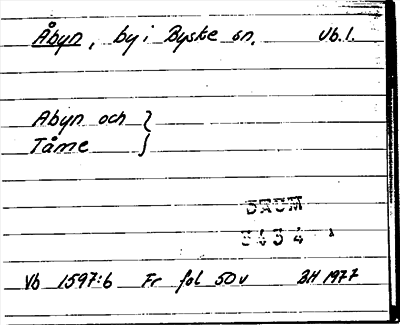 Åbyn, by i Byske sn. Vb.l.
Abyn och }
Tåme }
DAUM
3454
Vb 1597:6 Fr fol 50v BH 1977